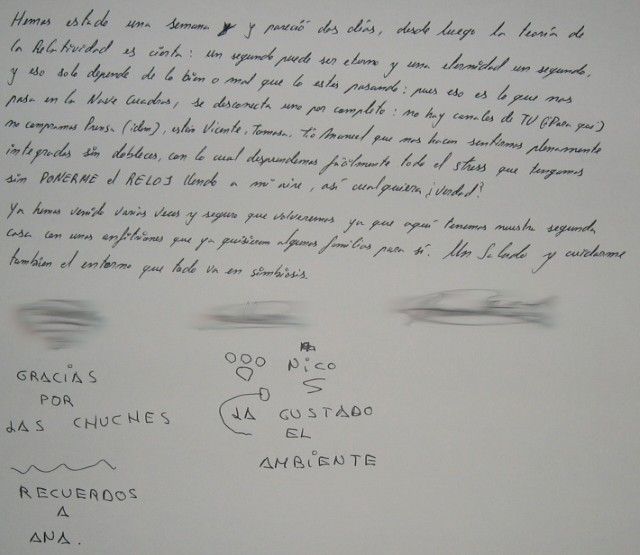 Hemos estado una semana y y pareció dos días, desde luego la teoría de
la Relatividad es cierta: un segundo puede ser eterno y una eternidad un segundo,
y eso solo depende de lo bien o mal que lo estes pasando: pues eso es lo que nos
pasa en la Nave Cuadras, se desconecta uno por completo: no hay canales de TV (¿Para qué?)
no compramos Prensa (idem), están Vicente, Tomasa, Tío Manuel que nos hacen sentirnos plenamente
integrados sin dobleces, con lo cual desprendemos fácilmente todo el stress que tengamos
sin PONERME el RELOJ llendo a mi aire, así cualquiera ¿verdad?
Ya hemos venido varias veces y seguro que volveremos ya que aquí tenemos nuestra segunda
casa con unos anfitriones que ya quisieran algunas familias para sí. Un Saludo y cuidarme
tambien el entorno que todo va en simbiosis.
GRACIAS
POR
LAS CHUCHES
RECUERDOS
A
ANA.
NICO
S
LA GUSTADO
EL
AMBIENTE